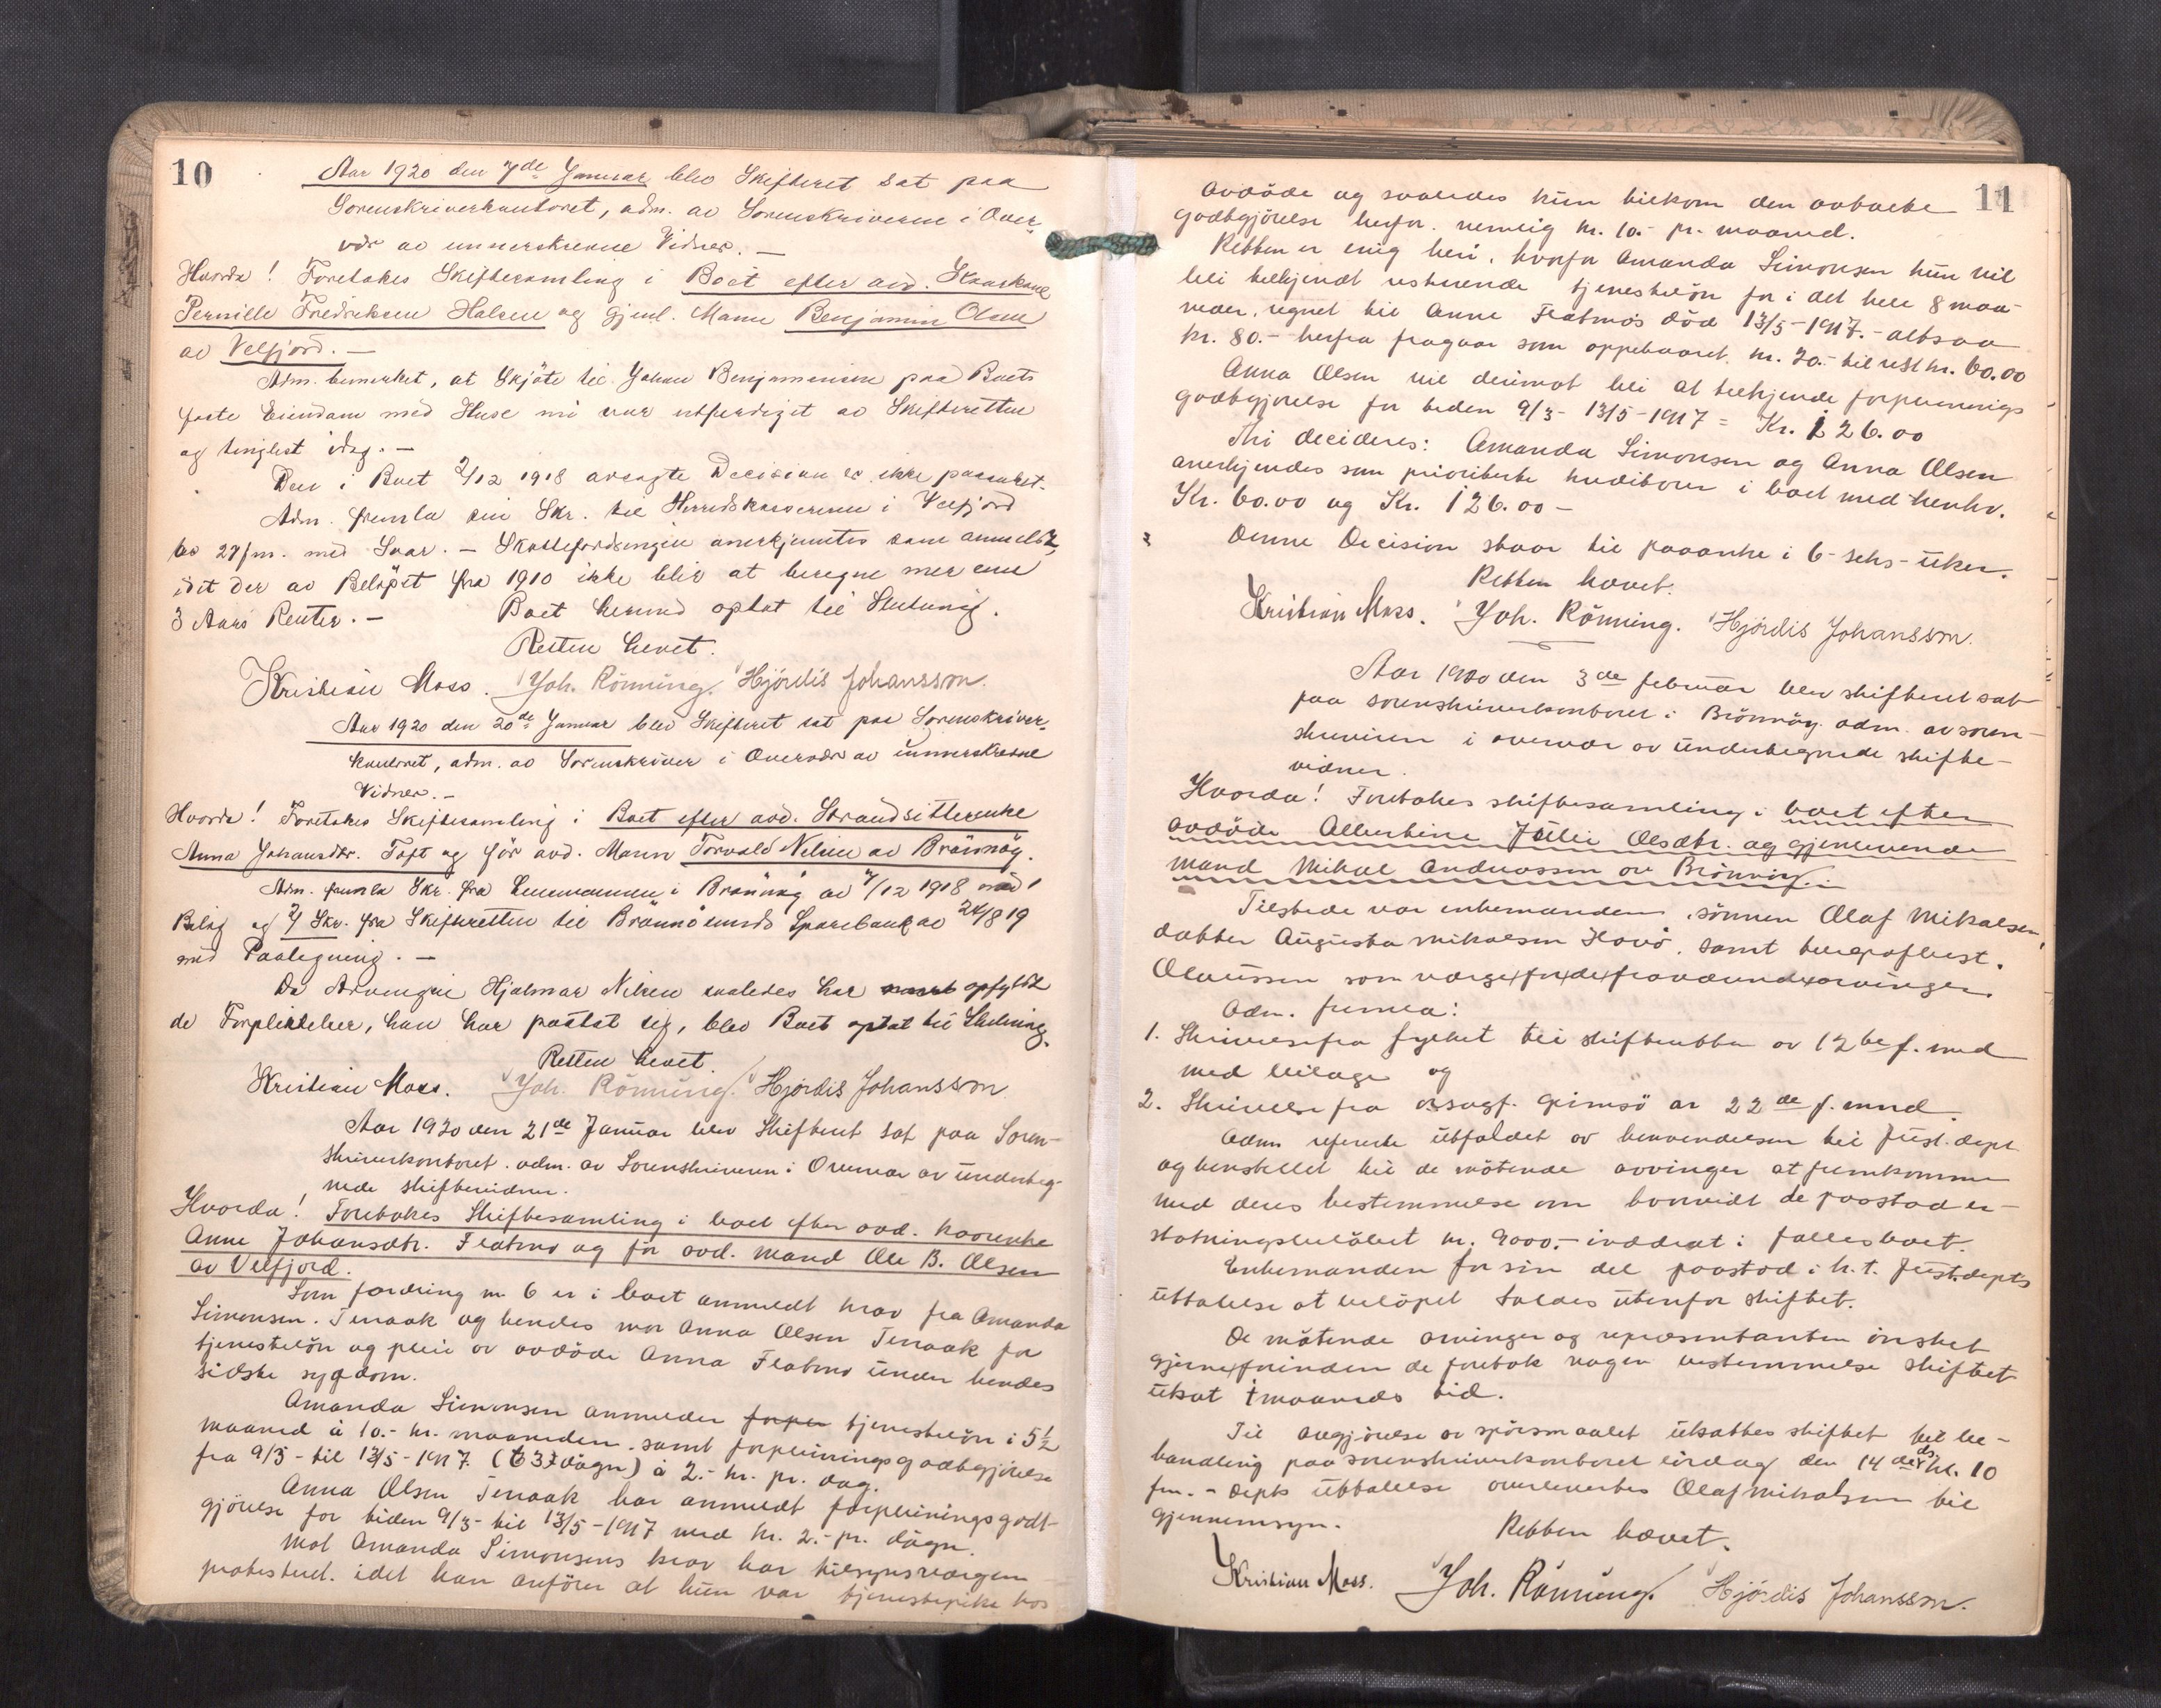 10
Aar 1920 den 7de Januar blev Skifteret sat paa
Sorenskriverkontoret, adm. av Sorenskriveren i Over-
vær av underskrevne Vidner. —
Hvorda! Foretakes Skiftesamling i Boet efter avd. Kaarkone
Pernille Fredriksen Halsen og Gjenl. Mann Benjamin Olsen
av Velfjord. —
Adm. bemerket, at Skjøte til Johan Benjaminsen paa Boets
faste Eiendom med Huse nu var utferdiget av Skifteretten
og tinglest idag. —
Den i Boet 2/12 1918 avsagte Decision er ikke paaanket.
Adm. fremla sin Skr. til Herredskassereren i Velfjord
av 27 fm. med Svar. — Skattefordringen anerkjentes som anmeldt,
idet der av Beløpet fra 1910 ikke blir at beregne mer enn
3 Aars Renter. — Boet hermed optat til Slutning.
Retten hevet.
Kristian Moss. Joh. Rönning. Hjördis Johansson.
Aar 1920 den 20de Januar blev Skifteret sat paa Sorenskriver-
kontoret, adm. av Sorenskriver i Overvær av underskrevne
Vidner. —
Hvorda! Foretakes Skiftesamling i Boet efter avd. Strandsitterenke
Anna Johansdtr. Toft og før avd. Mann Torvald Nilsen av Brønnøy.
Adm. fremla Skr. fra Lensmannen i Brønnøy av 7/12 1918 med 1
Bilag og 2/ Skr. fra Skifteretten til Brønnøysunds Sparebank av 24/8 19
med Paategning. —
Da Arvingen Hjalmar Nilsen saaledes har opfyldt
de Forpliktelser, han har paatat sig, blev Boet optat til Slutning.
Retten hevet.
Kristian Moss. Joh. Rönning. Hjördis Johansson.
Aar 1920 den 21de Januar blev Skifteret sat paa Soren-
skriverkontoret. adm. av Sorenskriveren i Overvær av underteg-
nede skiftevidner.
Hvorda! Foretakes Skiftesamling i boet efter avd. kaarenke
Anne Johansdtr. Flatmo og før avd. mand Ole B. Olsen
av Velfjord.
Som fordring nr. 6 er i boet anmeldt krav fra Amanda
Simonsen. Tenaak og hendes mor Anna Olsen Tenaak for
tjenesteløn og pleie av avdøde Anna Flatmo under hendes
sidste sygdom.
Amanda Simonsen anmelder forplei tjenesteløn i 5½
maaned à 10.- kr. maaneden. samt forpleiningsgodtgjørelse
fra 9/3- til 13/5-1917. (63 døgn) à 2.- kr. pr. dag.
Anna Olsen Tenaak har anmeldt forpleiningsgodt-
gjørelse for tiden 9/3- til 13/5-1917 med kr. 2.- pr. døgn.
Mot Amanda Simonsens krav har tilsynsvergen
protestert. idet han anfører at hun var tjenestepike hos
11
avdøde og saaledes kun tilkom den avtalte
godtgjørelse herfor. nemlig kr. 10.- pr. maaned.
Retten er enig heri, hvorfor Amanda Simonsen kun vil
bli tilkjendt resterende tjenesteløn for i det hele 8 maa-
neder, regnet til Anne Flatmos død 13/5-1917.- altsaa
kr. 80.- herfra fragaar som oppebaaret kr. 20.- til rest kr. 60.00
Anna Olsen vil derimot bli at tilkjende forpleinings
godtgjørelse for tiden 9/3- 13/5-1917 = Kr. 126.00
Thi decideres: Amanda Simonsen og Anna Olsen
anerkjendes som prioriterte kreditorer i boet med henhv.
Kr. 60.00 og Kr. 126.00 —
Denne Decision staar til paaanke i 6- seks- uker.
Retten hævet.
Kristian Moss. Joh. Rönning. Hjördis Johansson.
Aar 1920 den 3de februar blev skifteret sat
paa sorenskriverkontoret i Brønnøy. adm. av soren-
skriveren i overvær av undertegnede skifte-
vidner.
Hvorda! Foretakes skiftesamling i boet efter
avdøde Albertine Julie Olsdtr. og gjenlevende
mand Mikal Andreassen av Brønnøy.
Tilstede var enkemanden, sønnen Olaf Mikalsen,
datter Augusta Mikalsen Horvø. samt telegrafbest.
Olaussen som værge for de fraværende arvinger.
Adm. fremla:
1. Skrivelse fra fylket til skifteretten av 12te f. mnd
med bilage og
2. Skrivelse fra o.r.sagf. Grimsø av 22de f. mnd.
Adm. refererte utfaldet av henvendelsen til Just.dept
og henstillet til de møtende arvinger at fremkomme
med deres bestemmelse om hvorvidt de paastod er-
statningsbeløbet kr. 9000.- inddrat i fællesboet.
Enkemanden for sin del paastod i h.t. Just.depts
uttalelse at beløpet holdes utenfor skiftet.
De møtende arvinger og repræsentanten ønsket
gjerne, forinden de foretok nogen bestemmelse skiftet
utsat 1 maaneds tid.
Til avgjørelse av spørsmaalet utsattes skiftet til be-
handling paa sorenskriverkontoret lørdag den 14 de ds. kl. 10
fm. - Depts uttalelse overlevertes Olaf Mikalsen til
gjennemsyn.
Retten hævet.
Kristian Moss. Joh. Rönning. Hjördis Johansson.